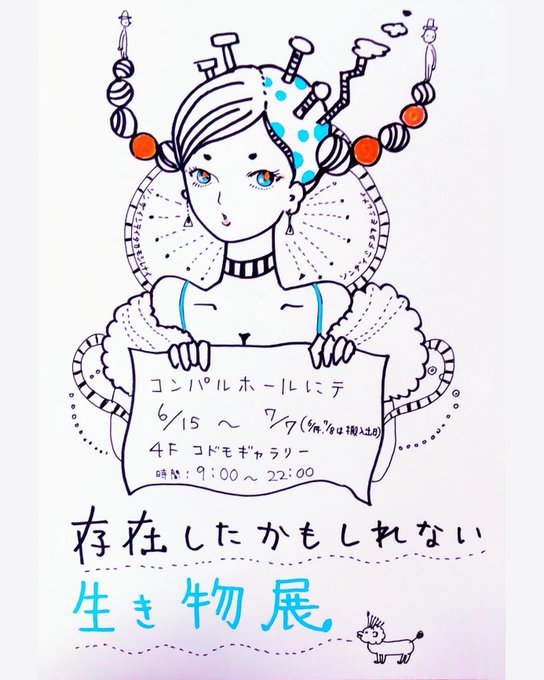 コンパルホールにテ
6/15 〜 7/7 (6/14, 7/8は搬入出日)
4F コドモギャラリー
時間:9:00〜22:00
存在したかもしれない
生き物展